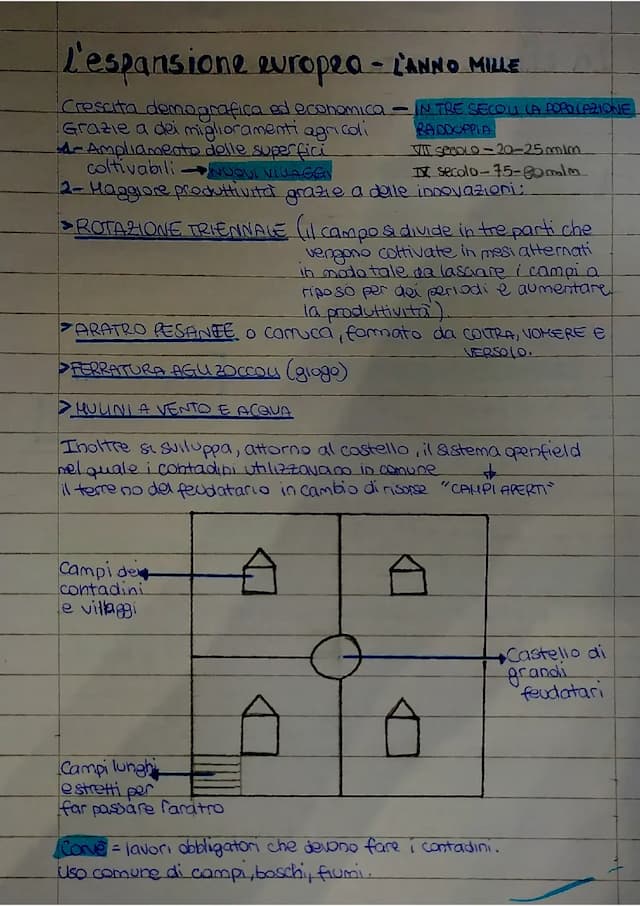 L'espansione europea - L'ANNO MILLE
Crescita demografica ed economica - IN TRE SECOLI LA POPOLAZIONE
Grazie a dei miglioramenti agricoli RADDOPPIA
1- Ampliamento delle superfici VII secolo - 20-25 mln
coltivabili → NUOVI VILLAGGI IX secolo - 75-80 mln
2- Maggiore produttività grazie a delle innovazioni:
> ROTAZIONE TRIENNALE (il campo si divide in tre parti che
vengono coltivate in mesi alternati
in modo tale da lasciare i campi a
riposo per dei periodi e aumentare
la produttività).
> ARATRO PESANTE o carruca, formato da COLTRA, VOMERE E
VERSOIO.
> FERRATURA AGLI ZOCCOLI (giogo)
> MULINI A VENTO E ACQUA
Inoltre si sviluppa, attorno al castello, il sistema openfield
nel quale i contadini utilizzavano in comune ↓
il terreno del feudatario in cambio di risorse "CAMPI APERTI"
Campi dei
contadini
e villaggi
Castello di
grandi
feudatari
Campi lunghi
e stretti per
far passare l'aratro
Corvè = lavori obbligatori che devono fare i contadini.
Uso comune di campi, boschi, fiumi.